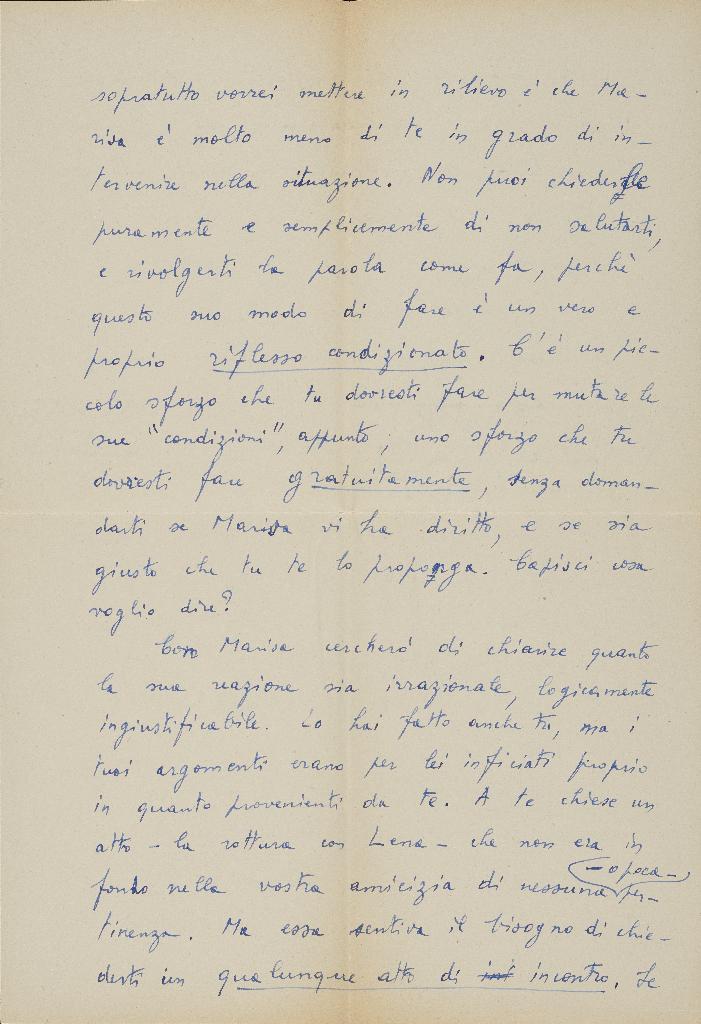 sopratutto vorrei mettere in rilievo è che Ma-
risa è molto meno di te in grado di in-
tervenire nella situazione. Non puoi chiederle
puramente e semplicemente di non salutarti,
e rivolgerti la parola come fa, perchè
questo suo modo di fare è un vero e
proprio riflesso condizionato. C'è un pic-
colo sforzo che tu dovresti fare per mutare le
sue "condizioni", appunto; uno sforzo che tu
dovresti fare gratuitamente, senza doman-
darti se Marisa vi ha diritto, e se sia
giusto che tu te lo proponga. Capisci cosa
voglio dire?
Con Marisa cercherò di chiarire quanto
la sua reazione sia irrazionale, logicamente
ingiustificabile. Lo hai fatto anche tu, ma i
tuoi argomenti erano per lei inficiati proprio
in quanto provenienti da te. A te chiese un
atto - la rottura con Lena - che non era in
fondo nella vostra amicizia di nessuna - o poca - per-
tinenza. Ma essa sentiva il bisogno di chie-
derti un qualunque atto di incontro. Se